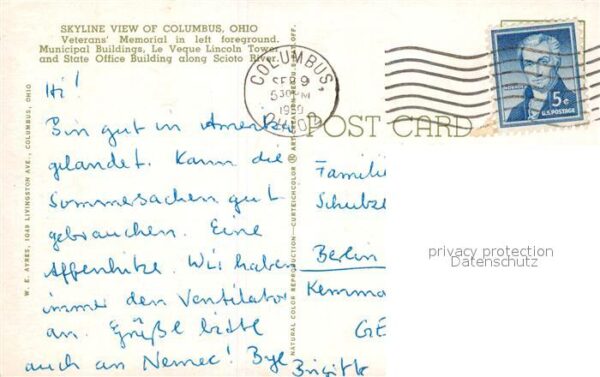 SKYLINE VIEW OF COLUMBUS, OHIO
Veterans' Memorial in left foreground.
Municipal Buildings, Le Veque Lincoln Tower
and State Office Building along Scioto River.
COLUMBUS,
SEP 9
530 PM
OHIO
MONROE
5¢
U.S. POSTAGE
POST CARD
Hi!
Bin gut in Amerika
gelandet. Kann die
Sommersachen gut
gebrauchen. Eine
Affenhitze. Wir haben
immer den Ventilator
an. Grüße bitte
auch an Nemec! Bye
Brigitte
W. E. AYRES, 1049 LIVINGSTON AVE., COLUMBUS, OHIO
NATURAL COLOR REPRODUCTION—CURTEICHCOLOR
Familie
Schubze
Berlin
Kemma
GE
privacy protection
Datenschutz